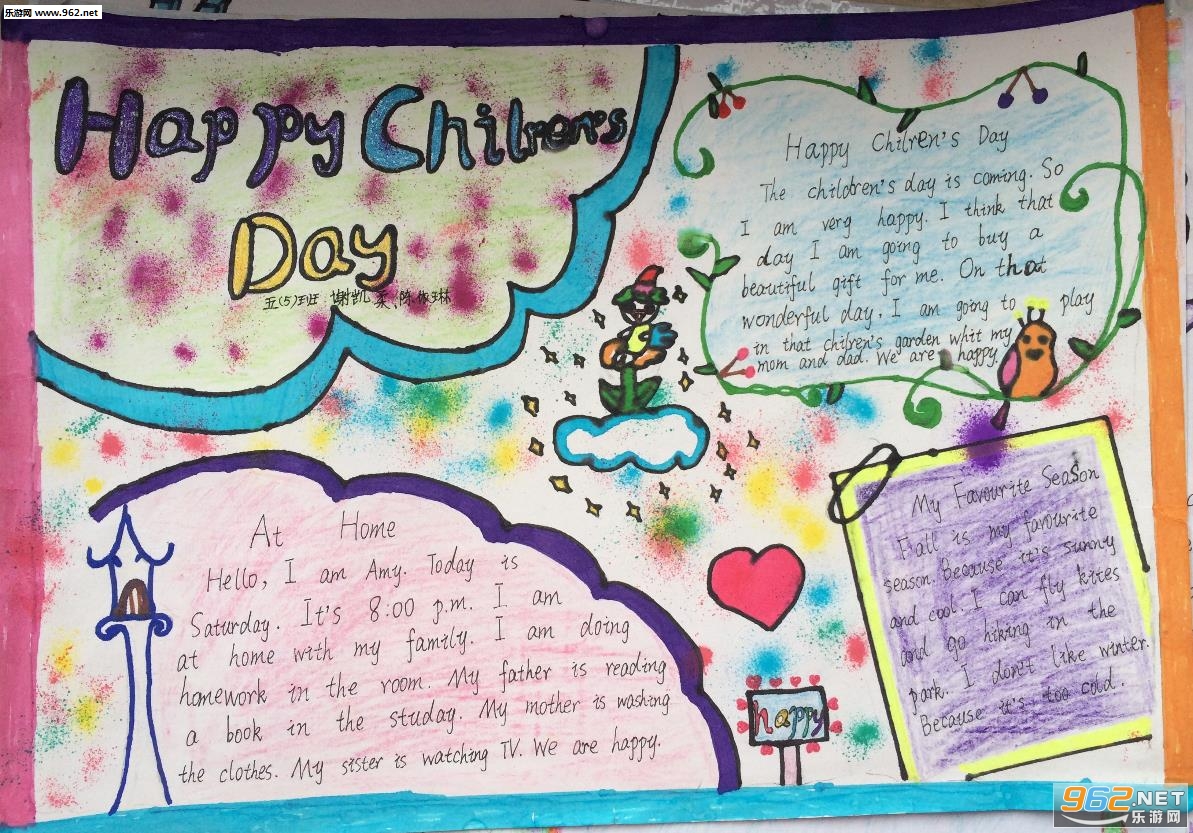 乐游网 www.962.net
Happy Chilren's
Day
五(5)班 谢凯柔 陈依琳
Happy Chilren's Day
The childbren's day is coming. So
I am very happy. I think that
day I am going to buy a
beautiful gift for me. On that
wonderful day, I am going to play
in that chilren's garden whit my
mom and dad. We are happy.
At Home
Hello, I am Amy. Today is
Saturday. It's 8:00 p.m. I am
at home with my family. I am doing
homework in the room. My father is reading
a book in the studay. My mother is washing
the clothes. My sister is watching TV. We are happy.
happy
My Favourite Season
Fall is my favourite
season. Because it's sunny
and cool. I can fly kites
and go hiking in the
park. I don't like winter.
Because it's too cold.
962.NET
乐游网